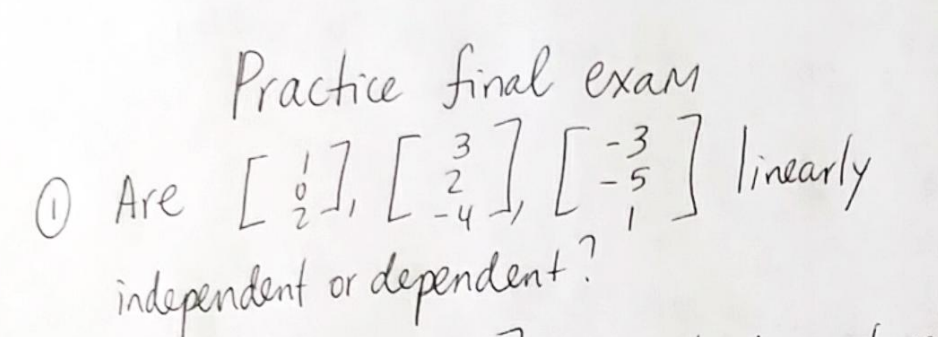 Practice final exam
① Are [1 0 2], [3 2 -4], [-3 -5 1] linearly
independent or dependent?